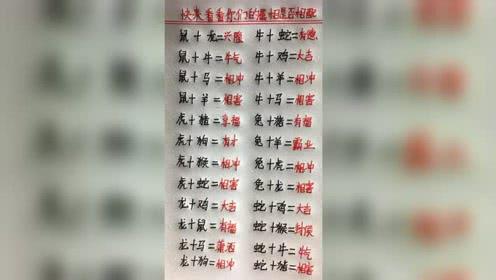 快来看看你们的属相是否相配
鼠+龙=兴隆 牛+蛇=有德
鼠+牛=牛气 牛+鸡=大吉
鼠+马=相冲 牛+羊=相冲
鼠+羊=相害 牛+马=相害
虎+猪=享福 兔+猪=有福
虎+狗=有才 兔+羊=霸业
虎+猴=相冲 兔+虎=相冲
虎+蛇=相害 兔+龙=相害
龙+鸡=大吉 蛇+鸡=大吉
龙+鼠=有福 蛇+猴=封侯
龙+马=潇洒 蛇+牛=牛气
龙+狗=相冲 蛇+猪=相害